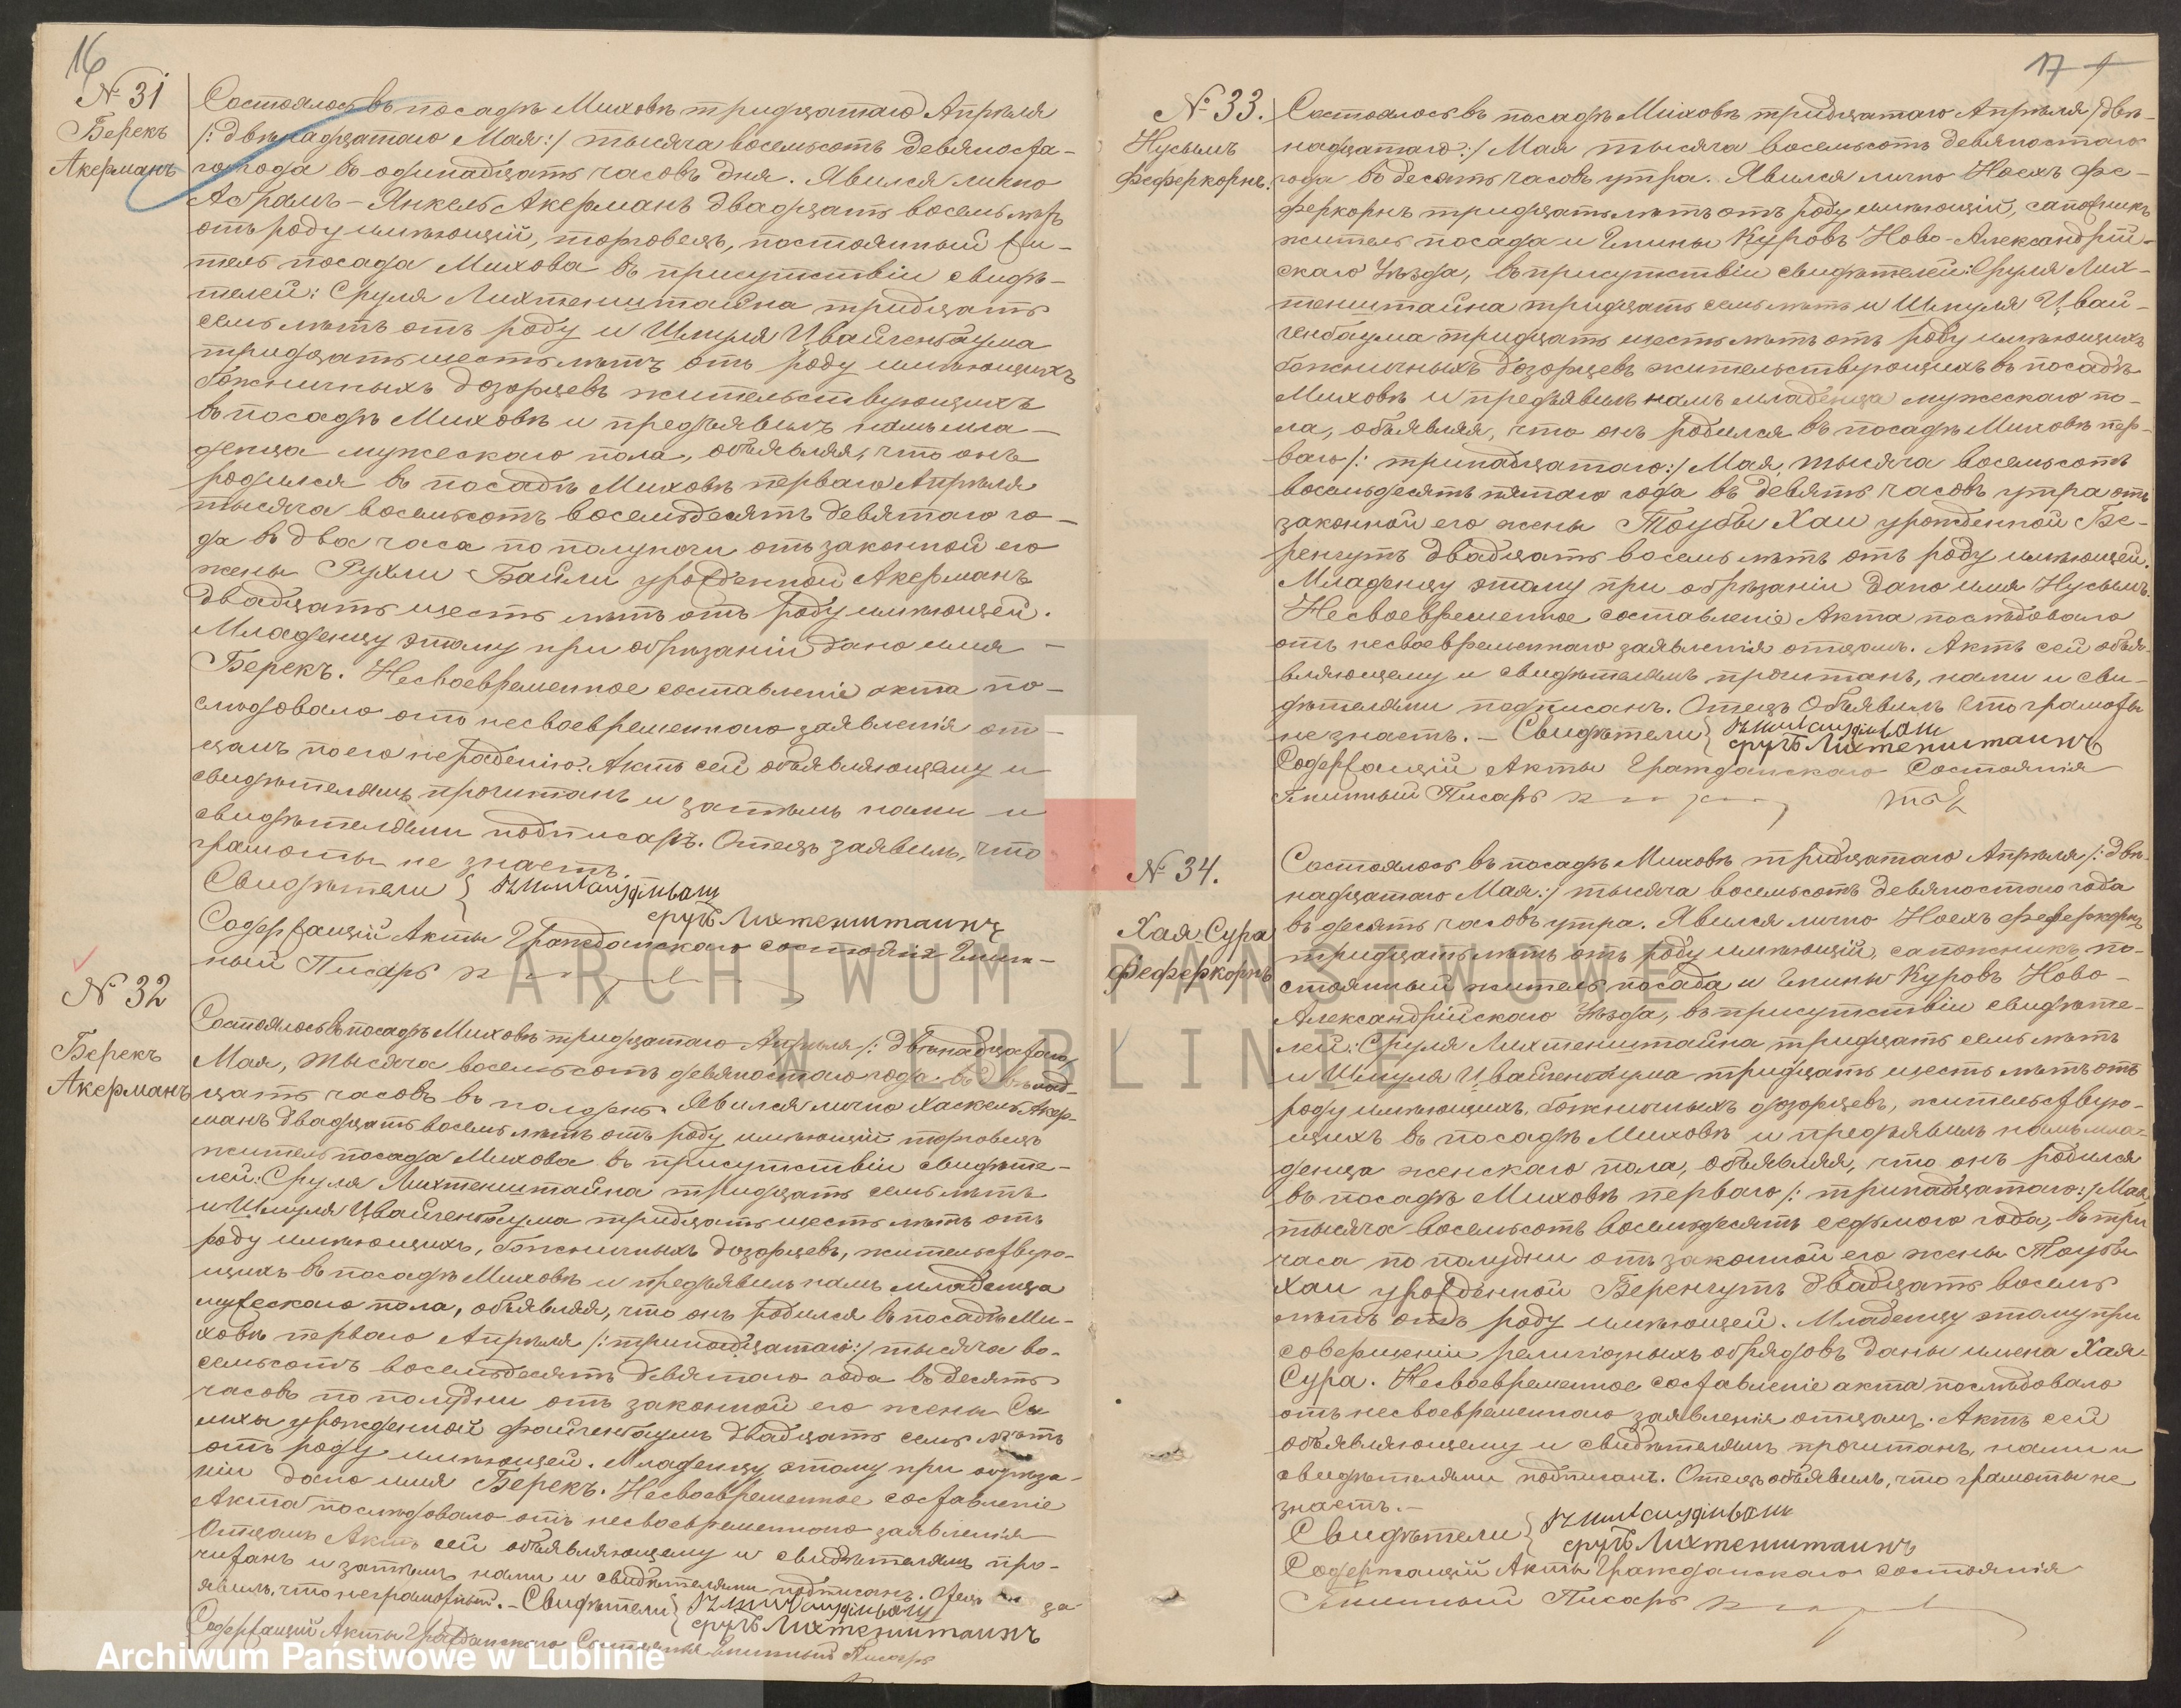 16
№ 31
Берекъ
Акерманъ
Состоялось въ посадѣ Миховѣ тридцатаго Апрѣля
/: двѣнадцатаго Мая :/ тысяча восемьсотъ девяноста-
го года въ одинадцать часовъ дня. Явился лично
Абрамъ-Янкель Акерманъ двадцать восемь лѣтъ
отъ роду имѣющій, торговецъ, постоянный жи-
тель посада Михова въ присутствіи свидѣ-
телей: Сруля Лихтенштайна тридцать
семь лѣтъ отъ роду и Шмуля Цвайгенбаума
тридцать шесть лѣтъ отъ роду имѣющихъ
божничныхъ дозорцевъ жительствующихъ
въ посадѣ Миховѣ и предъявилъ намъ мла-
денца мужескаго пола, объявляя, что онъ
родился въ посадѣ Миховѣ перваго Апрѣля
тысяча восемьсотъ восемьдесятъ девятаго го-
да въ два часа по полуночи отъ законной его
жены Рухли Байли урожденной Акерманъ
двадцать шесть лѣтъ отъ роду имѣющей.
Младенцу этому при обрѣзаніи дано имя
Берекъ. Несвоевременное составленіе акта по-
слѣдовало отъ несвоевременнаго заявленія от-
цамъ по его нерадѣнію. Актъ сей объявляющему и
свидѣтелямъ прочитанъ и затѣмъ нами и
свидѣтелями подписанъ. Отецъ заявилъ, что
грамоты не знаетъ.
Свидѣтели
сруль Лихтенштаинъ
Содержащій Акты Гражданскаго состоянія Гмин-
ный Писарь
№ 32
Берекъ
Акерманъ
Состоялось въ посадѣ Миховѣ тридцатаго Апрѣля /: двѣнадцатаго
Мая, тысяча восемьсотъ девяностаго года въ двѣнад-
цать часовъ въ полдень. Явился лично Хаскель Акер-
манъ двадцать восемь лѣтъ отъ роду имѣющій торговецъ
житель посада Михова въ присутствіи свидѣте-
лей: Сруля Лихтенштайна тридцать семь лѣтъ
и Шмуля Цвайгенбаума тридцать шесть лѣтъ отъ
роду имѣющихъ, божничныхъ дозорцевъ, жительствую-
щихъ въ посадѣ Миховѣ и предъявилъ намъ младенца
мужескаго пола, объявляя, что онъ родился въ посадѣ Ми-
ховѣ перваго Апрѣля /: тринадцатаго :/ тысяча во-
семьсотъ восемьдесятъ девятаго года въ десять
часовъ по полудни отъ законной его жены
урожденной Файгенбаумъ двадцать семь лѣтъ
отъ роду имѣющей. Младенцу этому при обрѣза-
ніи дано имя Берекъ. Несвоевременное составленіе
Акта послѣдовало отъ несвоевременнаго заявленія
Отцамъ Актъ сей объявляющему и свидѣтелямъ про-
читанъ и затѣмъ нами и свидѣтелями подписанъ. Отецъ за-
явилъ, что неграмотный. – Свидѣтели
сруль Лихтенштаинъ
Содержащій Акты Гражданскаго Состоянія Гминный Писарь
17
№ 33.
Нусымъ
Феферкорнъ.
Состоялось въ посадѣ Миховѣ тридцатаго Апрѣля /: двѣ-
надцатаго :/ Мая тысяча восемьсотъ девяностаго
года въ десять часовъ утра. Явился лично Ноехъ Фе-
феркорнъ тридцать лѣтъ отъ роду имѣющій, сапожникъ
житель посада и Гмины Куровъ Ново-Александрій-
скаго Уѣзда, въ присутствіи свидѣтелей: Сруля Лих-
тенштайна тридцать семь лѣтъ и Шмуля Цвай-
генбаума тридцать шесть лѣтъ отъ роду имѣющихъ
божничныхъ дозорцевъ жительствующихъ въ посадѣ
Миховѣ и предъявилъ намъ младенца мужескаго по-
ла, объявляя, что онъ родился въ посадѣ Миховѣ пер-
ваго /: тринадцатаго :/ Мая, тысяча восемьсотъ
восемьдесятъ пятаго года въ девять часовъ утра отъ
законной его жены Тоубы Хаи урожденной Бе-
ренгутъ двадцать восемь лѣтъ отъ роду имѣющей.
Младенцу этому при обрѣзаніи дано имя Нусымъ.
Несвоевременное составленіе Акта послѣдовало
отъ несвоевременнаго заявленія отцамъ. Актъ сей объя-
вляющему и свидѣтелямъ прочитанъ, нами и сви-
дѣтелями подписанъ. Отецъ Объявилъ что грамоты
не знаетъ. – Свидѣтели
сруль Лихтенштаинъ
Содержащій Акты Гражданскаго Состоянія
Гминный Писарь
№ 34.
Хая Сура
Феферкорнъ
Состоялось въ посадѣ Миховѣ тридцатаго Апрѣля /: двѣ-
надцатаго Мая :/ тысяча восемьсотъ девяностаго года
въ десять часовъ утра. Явился лично Ноехъ Феферкорнъ
тридцать лѣтъ отъ роду имѣющій, сапожникъ, по-
стоянный житель посада и Гмины Куровъ Ново-
Александрійскаго Уѣзда, въ присутствіи свидѣте-
лей: Сруля Лихтенштайна тридцать семь лѣтъ
и Шмуля Цвайгенбаума тридцать шесть лѣтъ отъ
роду имѣющихъ, божничныхъ дозорцевъ, жительствую-
щихъ въ посадѣ Миховѣ и предъявилъ намъ мла-
денца женскаго пола, объявляя, что онъ родился
въ посадѣ Миховѣ перваго /: тринадцатаго :/ Мая
тысяча восемьсотъ восемьдесятъ седьмого года, въ три
часа по полудни отъ законной его жены Тоубы
Хаи урожденной Беренгутъ двадцать восемь
лѣтъ отъ роду имѣющей. Младенцу этому при
совершеніи религіозныхъ обрядовъ даны имена Хая
Сура. Несвоевременное составленіе акта послѣдовало
отъ несвоевременнаго заявленія отцамъ. Актъ сей
объявляющему и свидѣтелямъ прочитанъ, нами и
свидѣтелями подписанъ. Отецъ объявилъ, что грамоты не
знаетъ. –
Свидѣтели
сруль Лихтенштаинъ
Содержащій Акты Гражданскаго состоянія
Гминный Писарь
ARCHIWUM PAŃSTWOWE
W LUBLINIE
Archiwum Państwowe w Lublinie